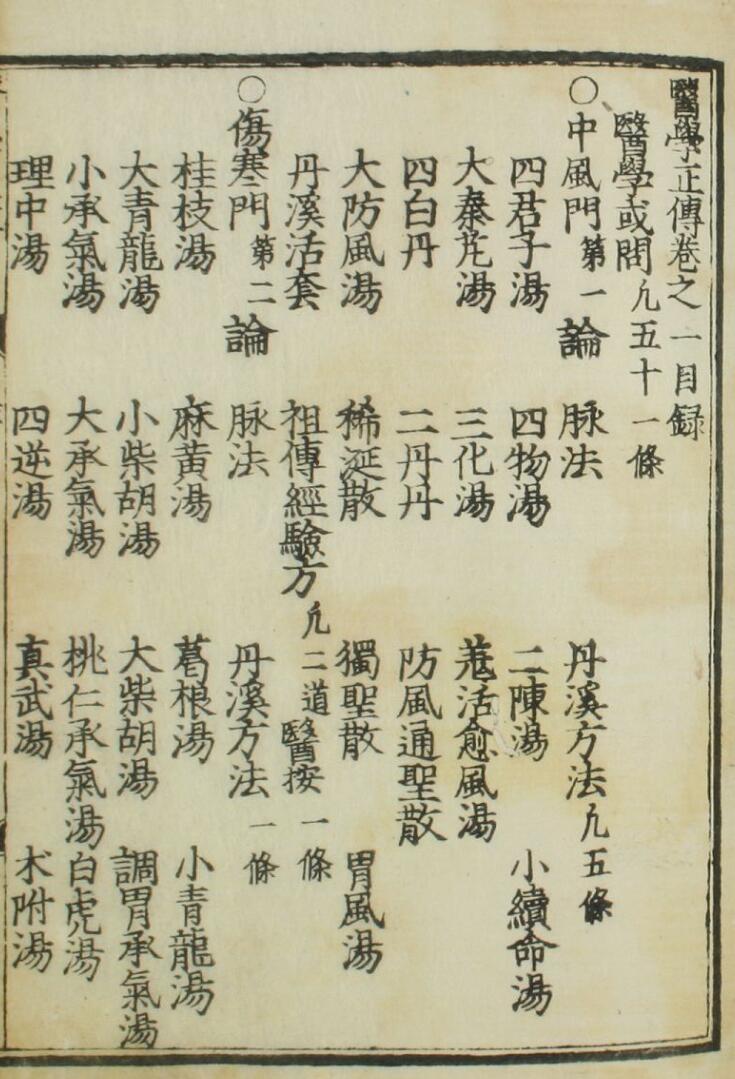 醫學正傳卷之一目録
醫學或問凢五十一條
○中風門第一論 脉法 丹溪方法凢五條
四君子湯 四物湯 二陳湯 小續命湯
大秦芃湯 三化湯 羗活愈風湯
四白丹 二丹丹 防風通聖散
大防風湯 稀涎散 獨聖散 胃風湯
丹溪活套 祖傳經驗方凢二道 醫按一條
○傷寒門第二論 脉法 丹溪方法一條
桂枝湯 麻黃湯 葛根湯 小青龍湯
大青龍湯 小柴胡湯 大柴胡湯 調胃承氣湯
小承氣湯 大承氣湯 桃仁承氣湯 白虎湯
理中湯 四逆湯 真武湯 术附湯